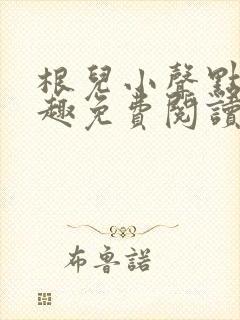 根兒小聲點
趣免費閱讀
布魯諾